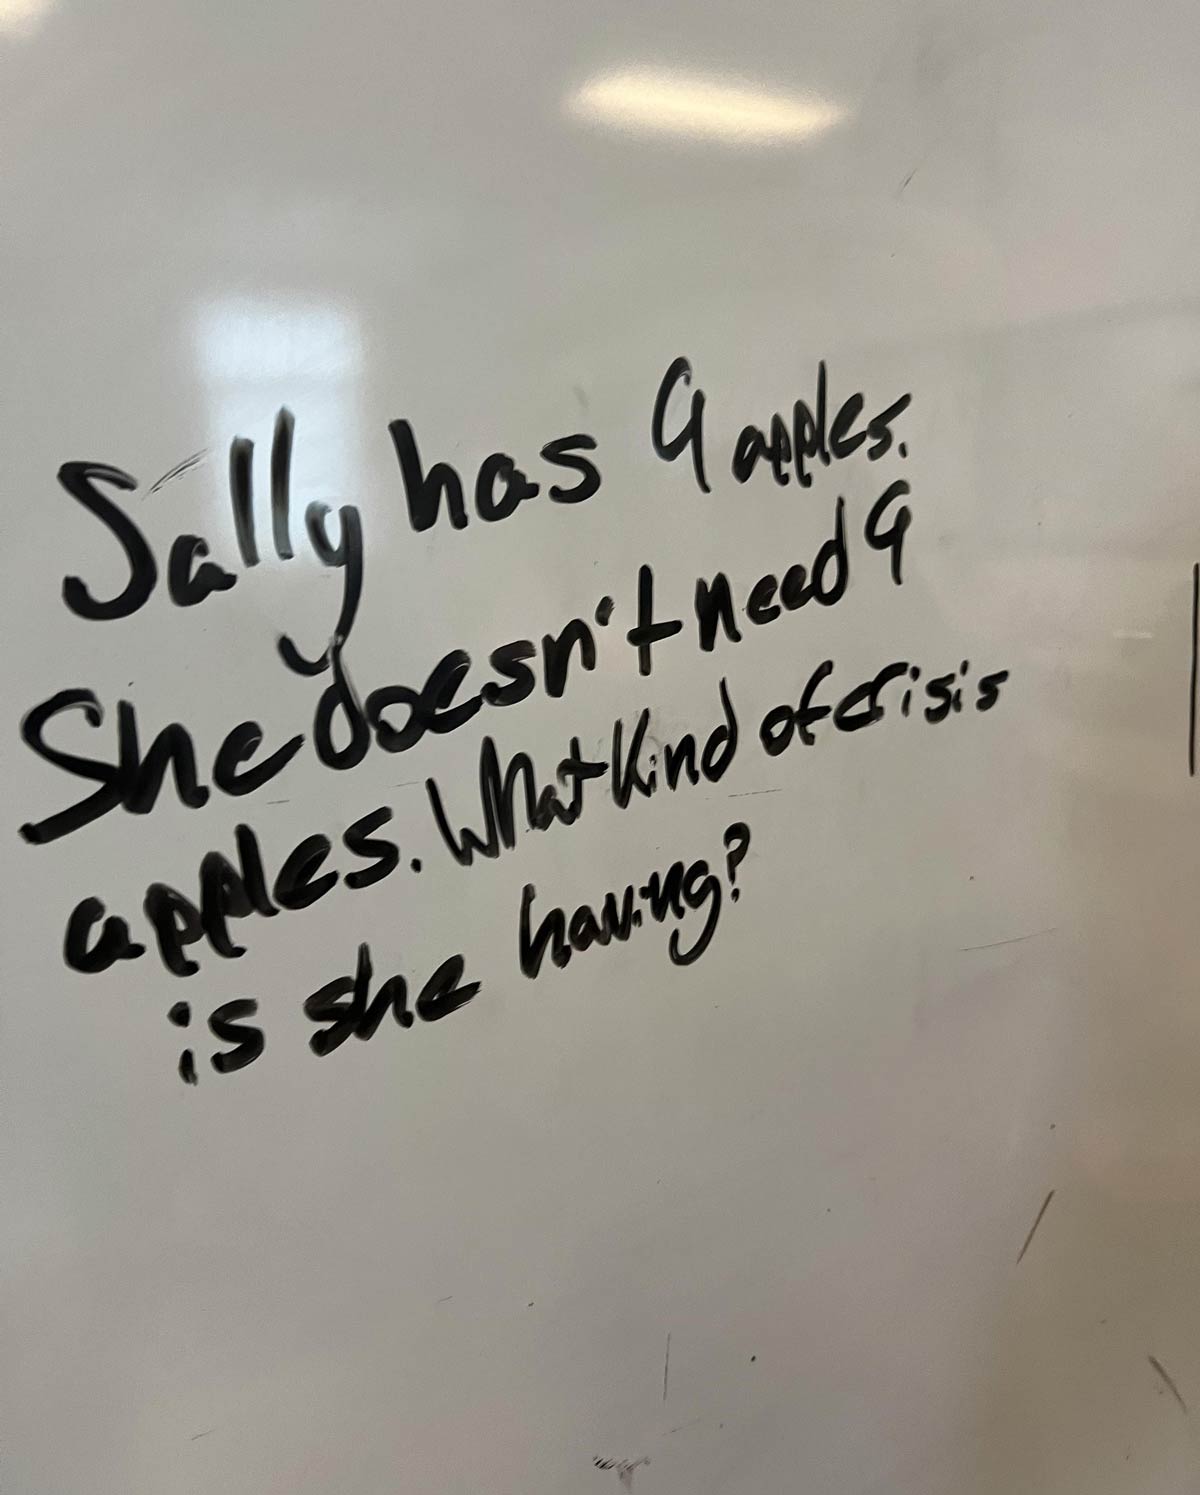 Sally has 9 apples.
She doesn't need 9
apples. What kind of crisis
is she having?